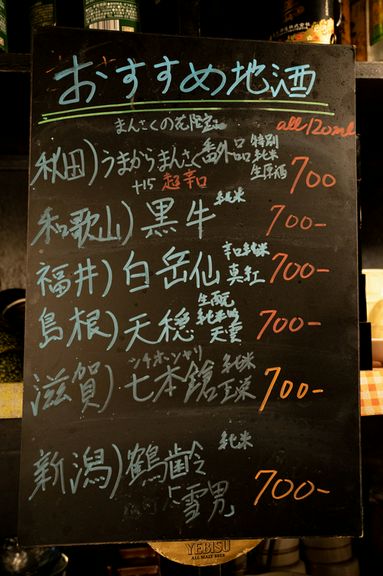 おすすめ地酒
まんさくの花限定 all 120ml
秋田)うまからまんさく番外品 特別純米生原酒 700
+15 超辛口
和歌山)黒牛 純米 700-
福井)白岳仙 辛口純米 真紅 700-
島根)天穏 生酛純米吟 天雲 700-
滋賀)七本鎗 純米 玉栄 700-
シチホンヤリ
新潟)鶴齢 純米 700-
「雪男」
YEBISU
ALL MALT BEER